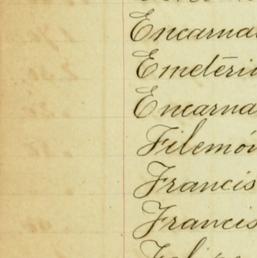 Encarna
Emetéri
Encarna
Filemó
Francis
Francis